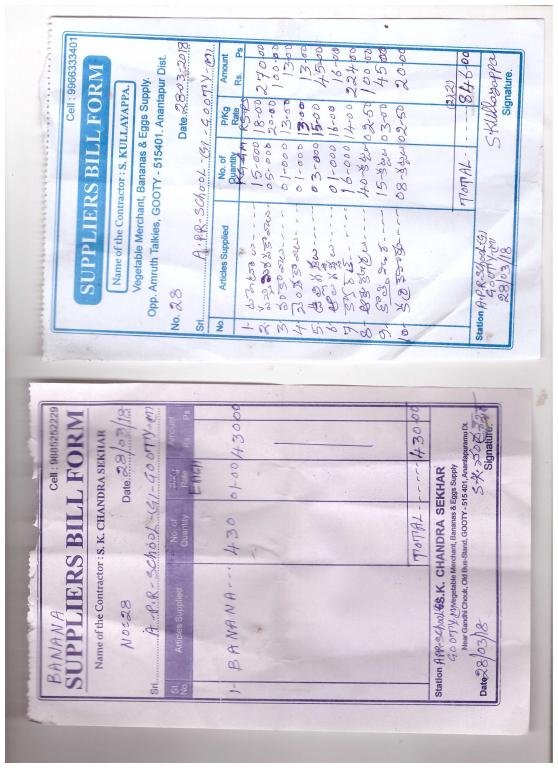 Cell : 9966333401
SUPPLIERS BILL FORM
Name of the Contractor : S. KULLAYAPPA.
Vegetable Merchant, Bananas & Eggs Supply.
Opp. Amruth Talkies, GOOTY - 515401. Anantapur Dist.
No. 28 Date 28-03-2018
Sri. A.P.R-School (G)-GOOTY-(M)
No Articles Supplied No. of Quantity P/Kg Rate Amount Rs. Ps
1- 15-000 18-00 270-00
2- 05-000 20-00 100-00
3- 01-000 13-00 13-00
4- 01-000 13-00 13-00
5- 03-000 15-00 45-00
6- 01-000 16-00 16-00
7- 16-000 14-00 224-00
8- 40- 02-50 100-00
9- 15- 03-00 45-00
10- 08- 02-50 20-00
TOTAL 846-00
Station A.P.R-School(G)
GOOTY-(M)
28/03/18
S Kullayappa
Signature.
BANANA
Cell : 9885252229
SUPPLIERS BILL FORM
Name of the Contractor : S. K. CHANDRA SEKHAR
No-28 Date. 28/03/18
Sri. A-P.R-School (G)-GOOTY-(M)
Sl. No. Articles Supplied No. of Quantity Rate Amount Rs. Ps
EACH
1- BANANA--- 430 01-00 430-00
TOTAL------430-00
Station A.P.R-School(G) S.K. CHANDRA SEKHAR
GOOTY-(M) Vegetable Merchant, Bananas & Eggs Supply
Near Gandhi Chouk, Old Bus-Stand, GOOTY - 515 401, Anantapuramu Dt.
Date 28/03/18
Signature.